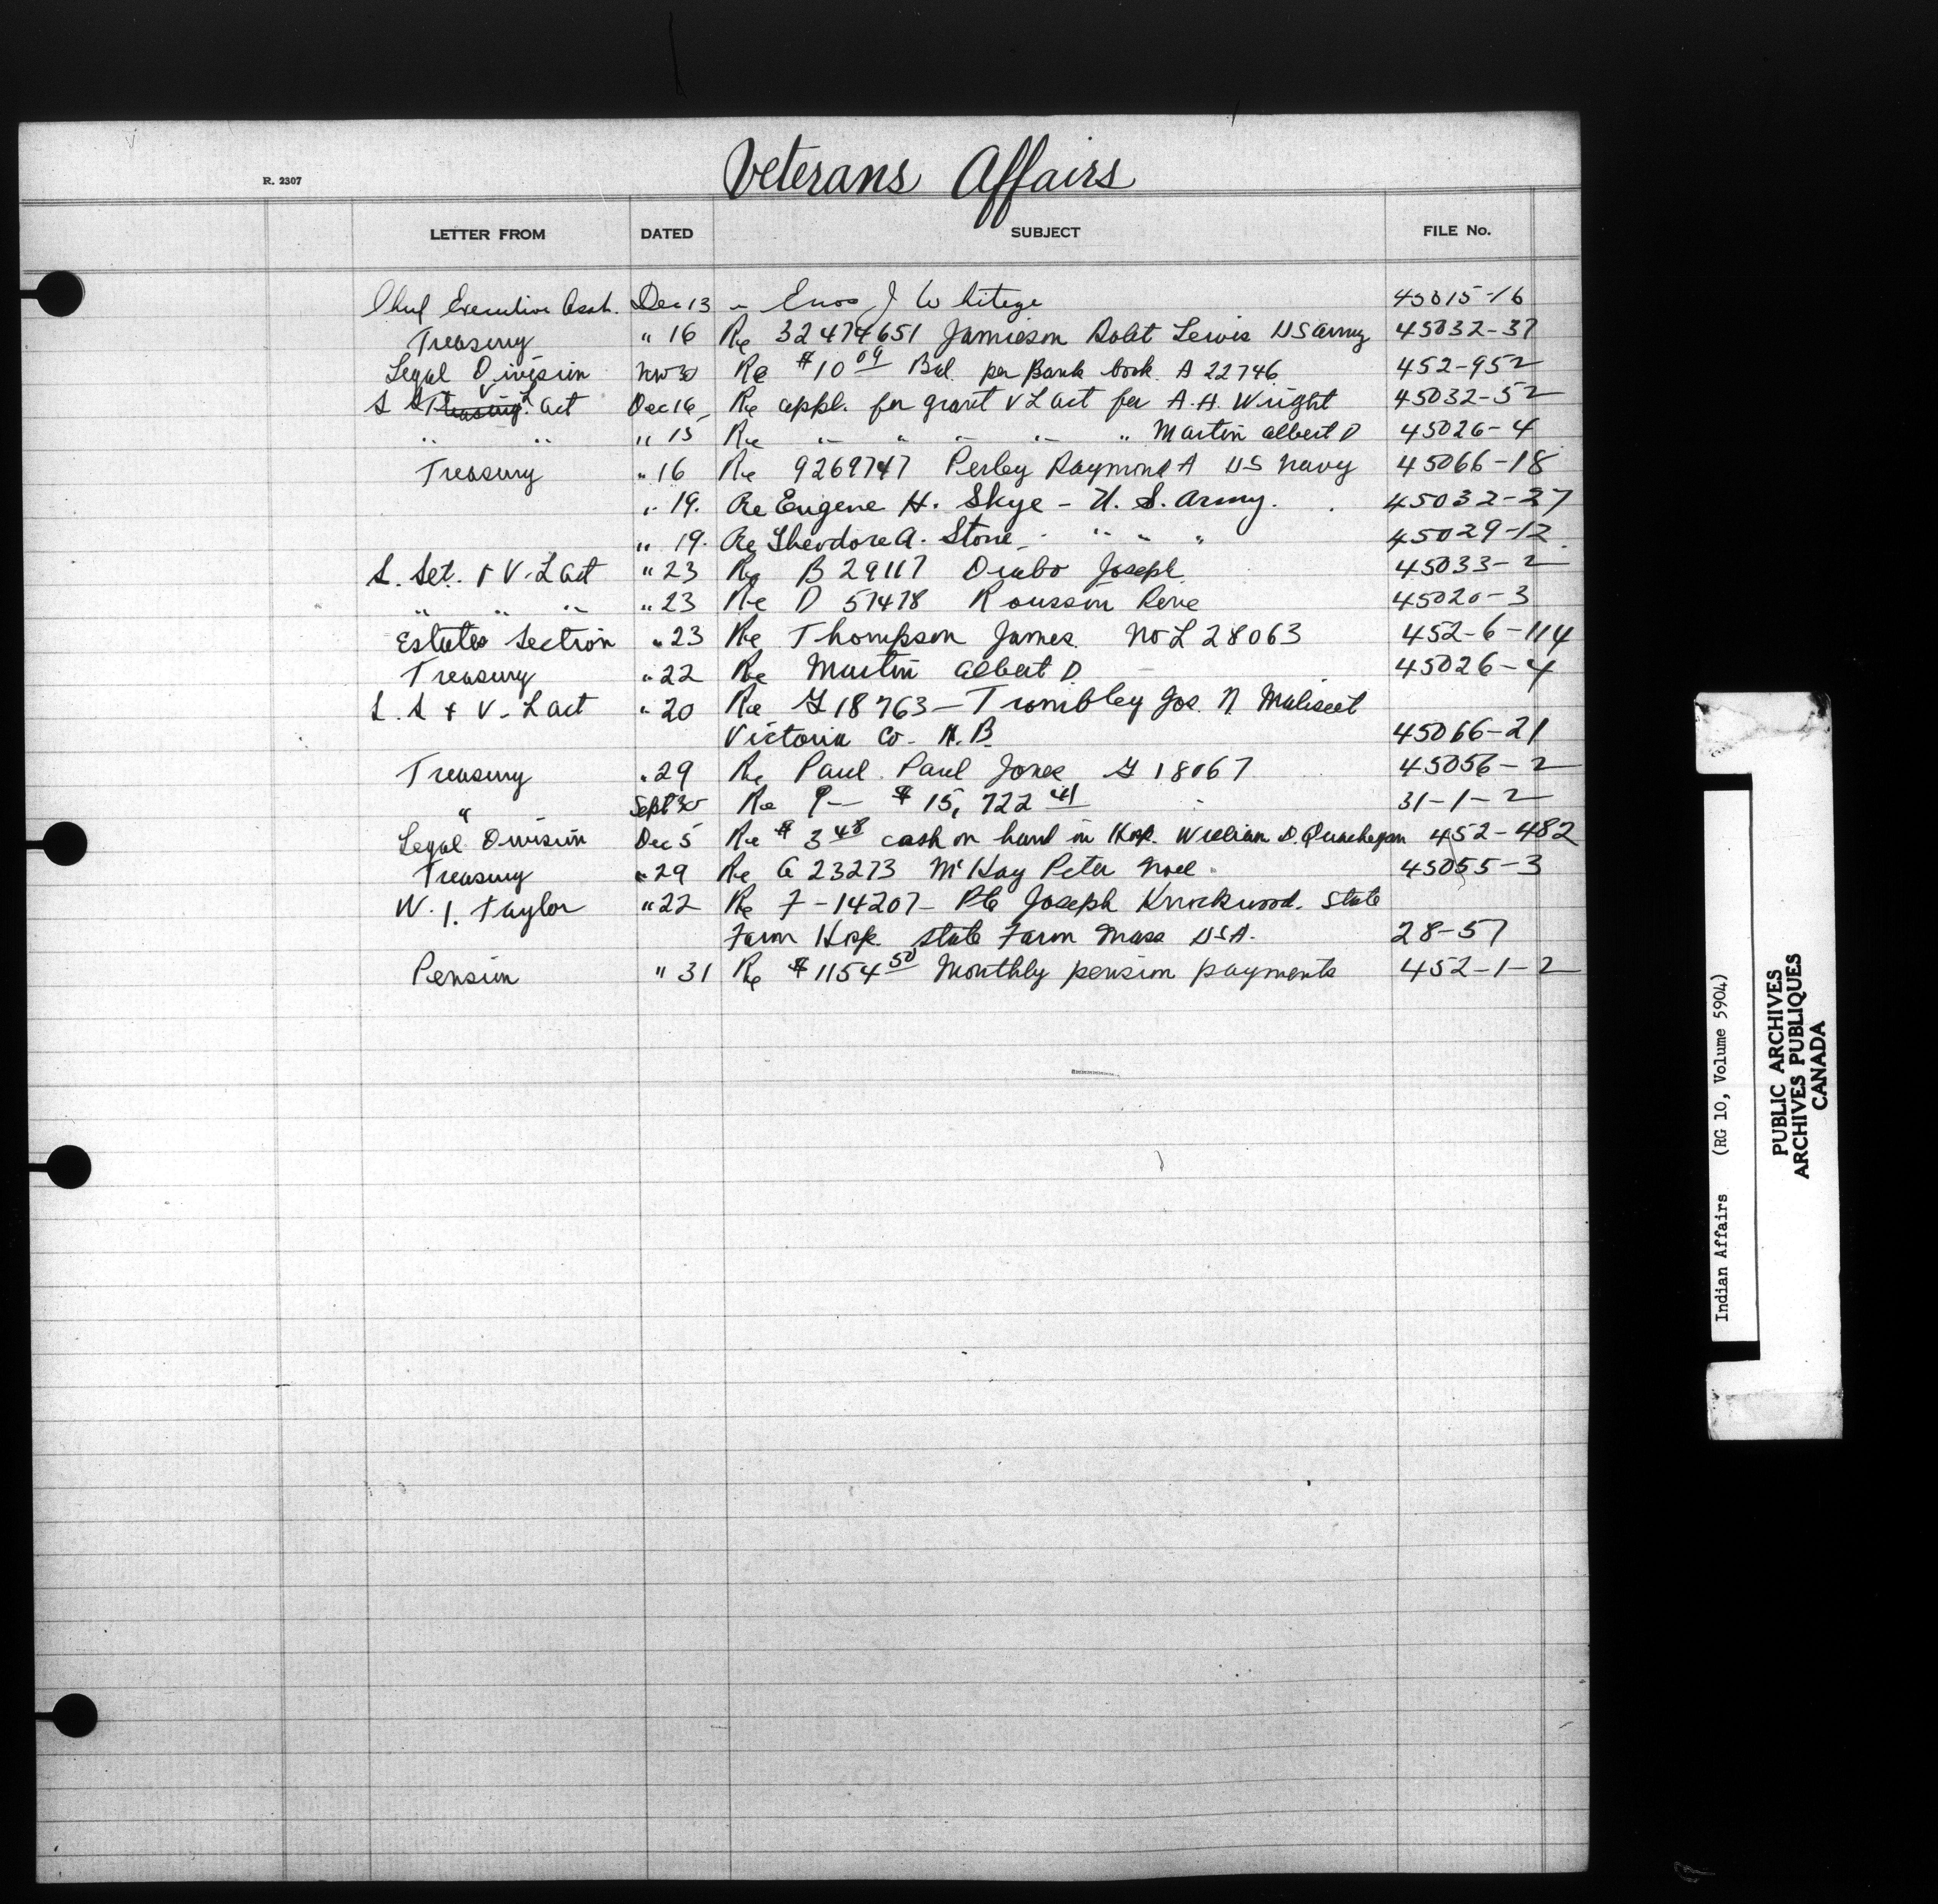 Veterans Affairs
R. 2307
LETTER FROM DATED SUBJECT FILE No.
Chief Executive Asst. Dec 13 - Enos J Whiteye 45015-16
Treasury " 16 Re 32474651 Jamieson Robt Lewis US Army 45032-37
Legal Division Nov 30 Re $10 09 Bal. per Bank book A 22746 452-952
S S Treasury V L act Dec 16 Re appl. for grant V L act for A.H. Wright 45032-52
" " " 15 Re " " " " " Martin Albert D 45026-4
Treasury " 16 Re 9269747 Perley Raymond A US Navy 45066-18
" 19. Re Eugene H. Skye - U. S. Army. 45032-27
" 19. Re Theodore A. Stone - " " " 45029-12
S. Set. & V. L act " 23 Re B 29117 Joseph 45033-2
" " " " 23 Re D 57478 Rousson Rene 45020-3
Estates Section " 23 Re Thompson James No L 28063 452-6-114
Treasury " 22 Re Martin Albert D. 45026-4
S. S & V. L act " 20 Re G 18763 - Trombley Jos. N. Maliseet
Victoria Co. N.B. 45066-21
Treasury " 29 Re Paul Paul Jones G 18067 45056-2
" Sept 30 Re P— $ 15,722 41 31-1-2
Legal Division Dec 5 Re $ 3 48 cash on hand in Hosp. William D. 452-482
Treasury " 29 Re G 23273 McKay Peter Noel 45055-3
W. J. Taylor " 22 Re F-14207- Pte Joseph Knockwood. State
Farm Hosp. State Farm Mass USA. 28-57
Pension " 31 Re $1154 50 Monthly pension payments 452-1-2
Indian Affairs (RG 10, Volume 5904)
PUBLIC ARCHIVES
ARCHIVES PUBLIQUES
CANADA